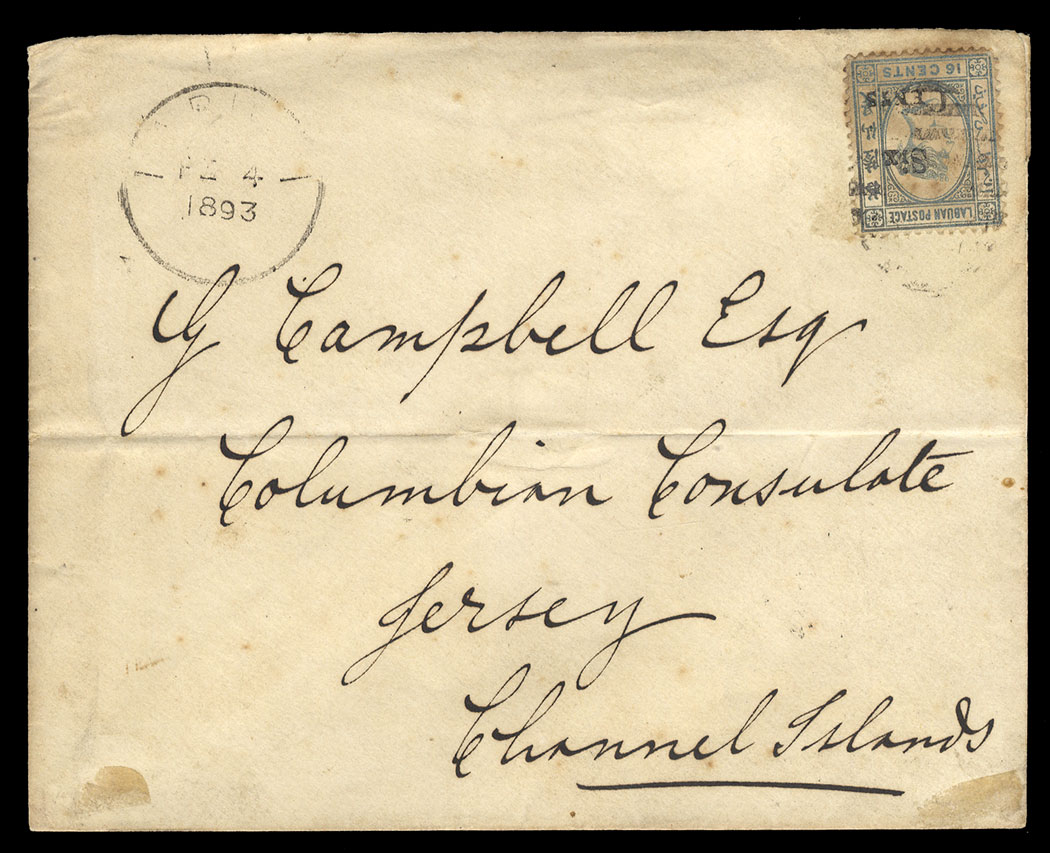 FE 4
1893
16 CENTS
Six
CENTS
LABUAN POSTAGE
G Campbell Esq
Columbian Consulate
Jersey
Channel Islands